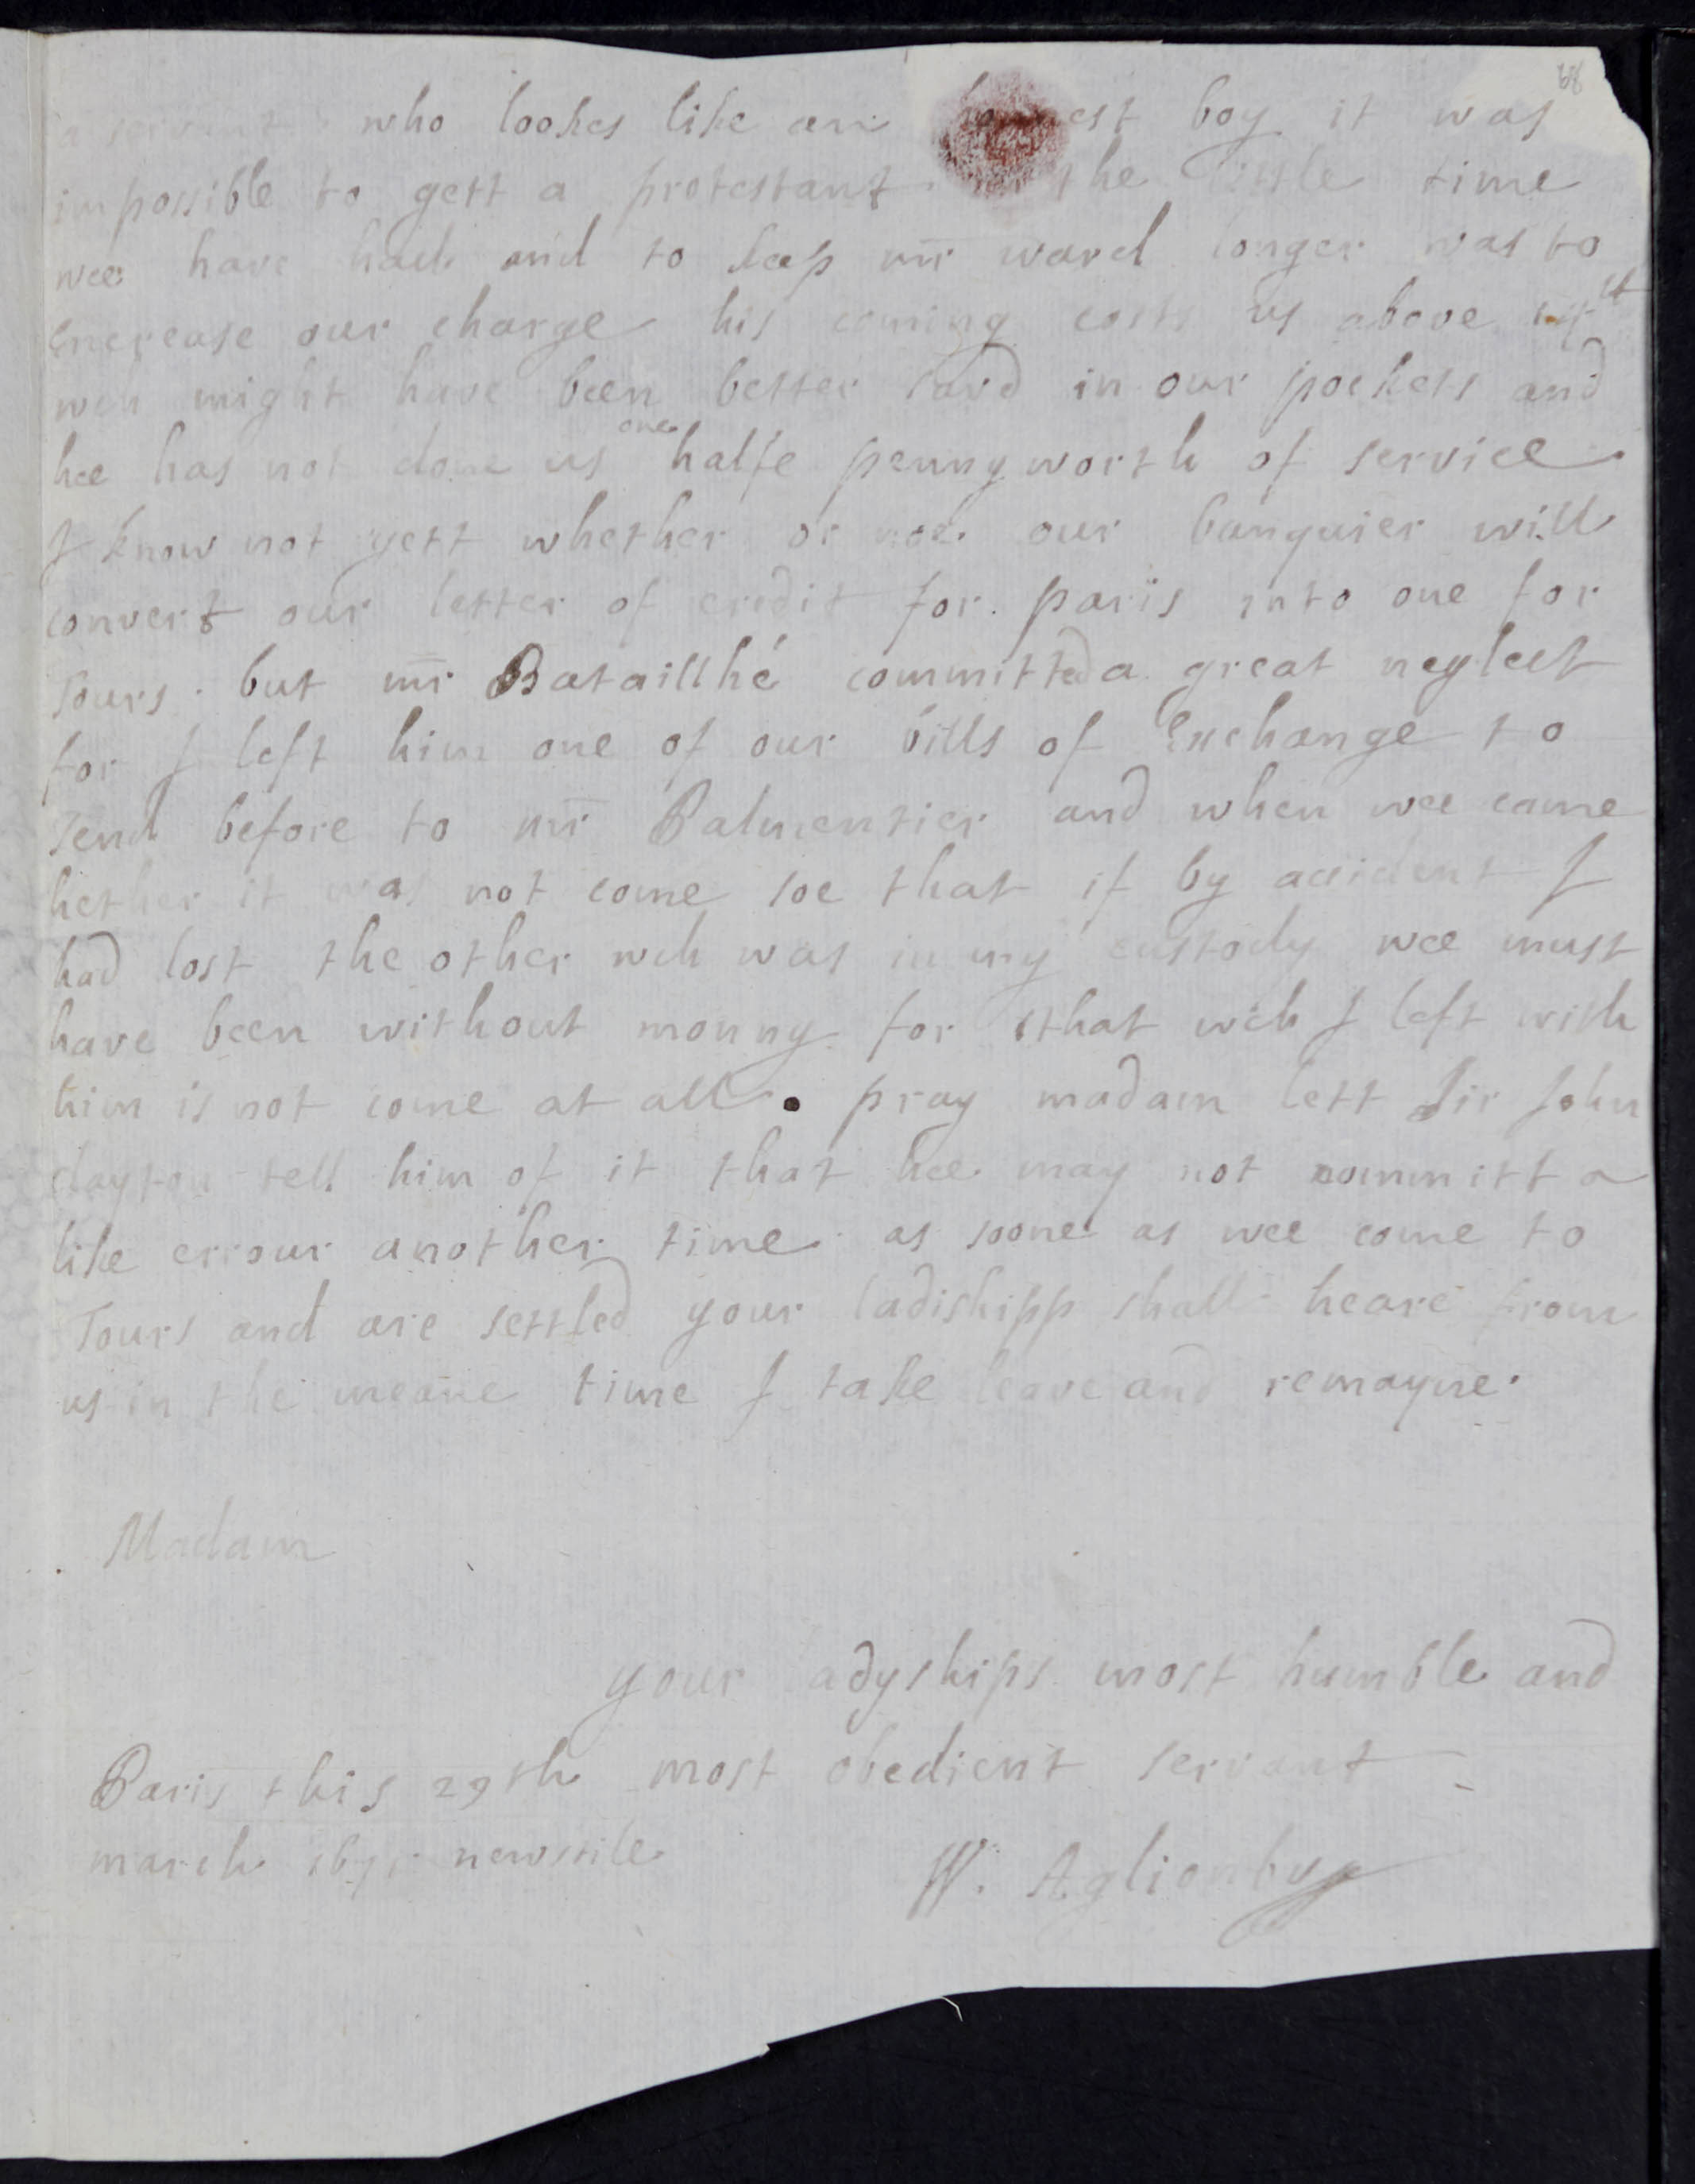 a servant who lookes like an honest boy it was
impossible to gett a protestant in the little time
wee have had and to keep mr ward longer was to
encrease our charge his coming costs us above
wch might have been better savd in our pockets and
hee has not done us one halfe penny worth of service
I know not yett whether or noe our banquier will
convert our letter of credit for paris into one for
Tours but mr Bataillhé committed a great neglect
for I left him one of our bills of Exchange to
send before to mr Palmentier and when wee came
hether it was not come soe that if by accident I
had lost the other wch was in my custody wee must
have been without monny for that wch I left with
him is not come at all. pray madam lett Sir John
clayton tell him of it that hee may not committ a
like errour another time as soone as wee come to
Tours and are settled your ladishipp shall heare from
us in the meane time I take leave and remayne.
Madam
your adyships most humble and
most obedient servant
Paris this 29th
march newstile
W. Aglionby